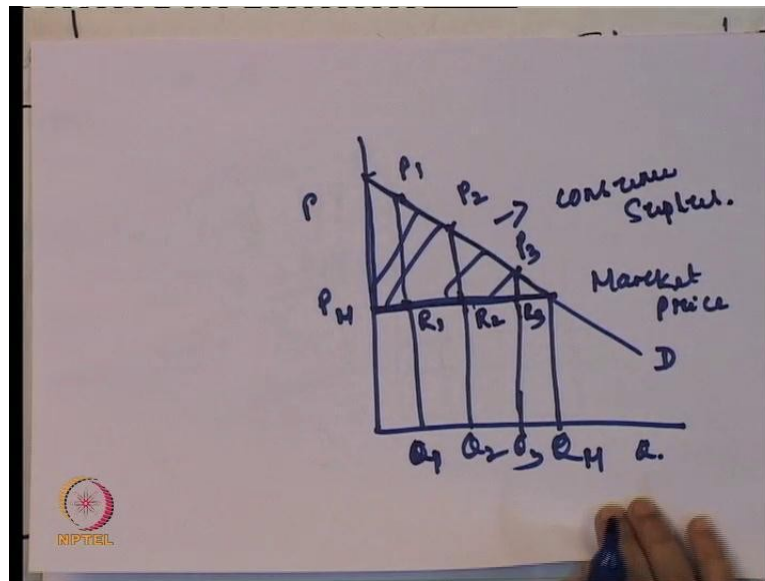 P
P1
P2
P3
consume
Suplus.
PM
Market
price
R1
R2
R3
D
Q1
Q2
Q3
QM
Q.
NPTEL